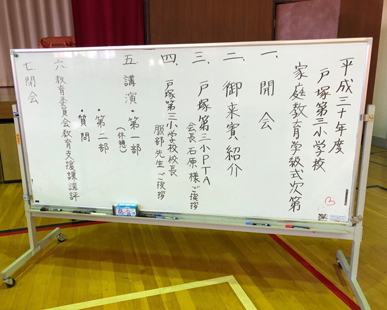 平成三十年度
戸塚第三小学校
家庭教育学級式次第
一、開会
二、御来賓紹介
三、戸塚第三小PTA
会長石原様ご挨拶
四、戸塚第三小学校校長
服部先生ご挨拶
五 講演・第一部
(休憩)
・第二部
・質問
六 教育委員会教育支援課講評
七 閉会